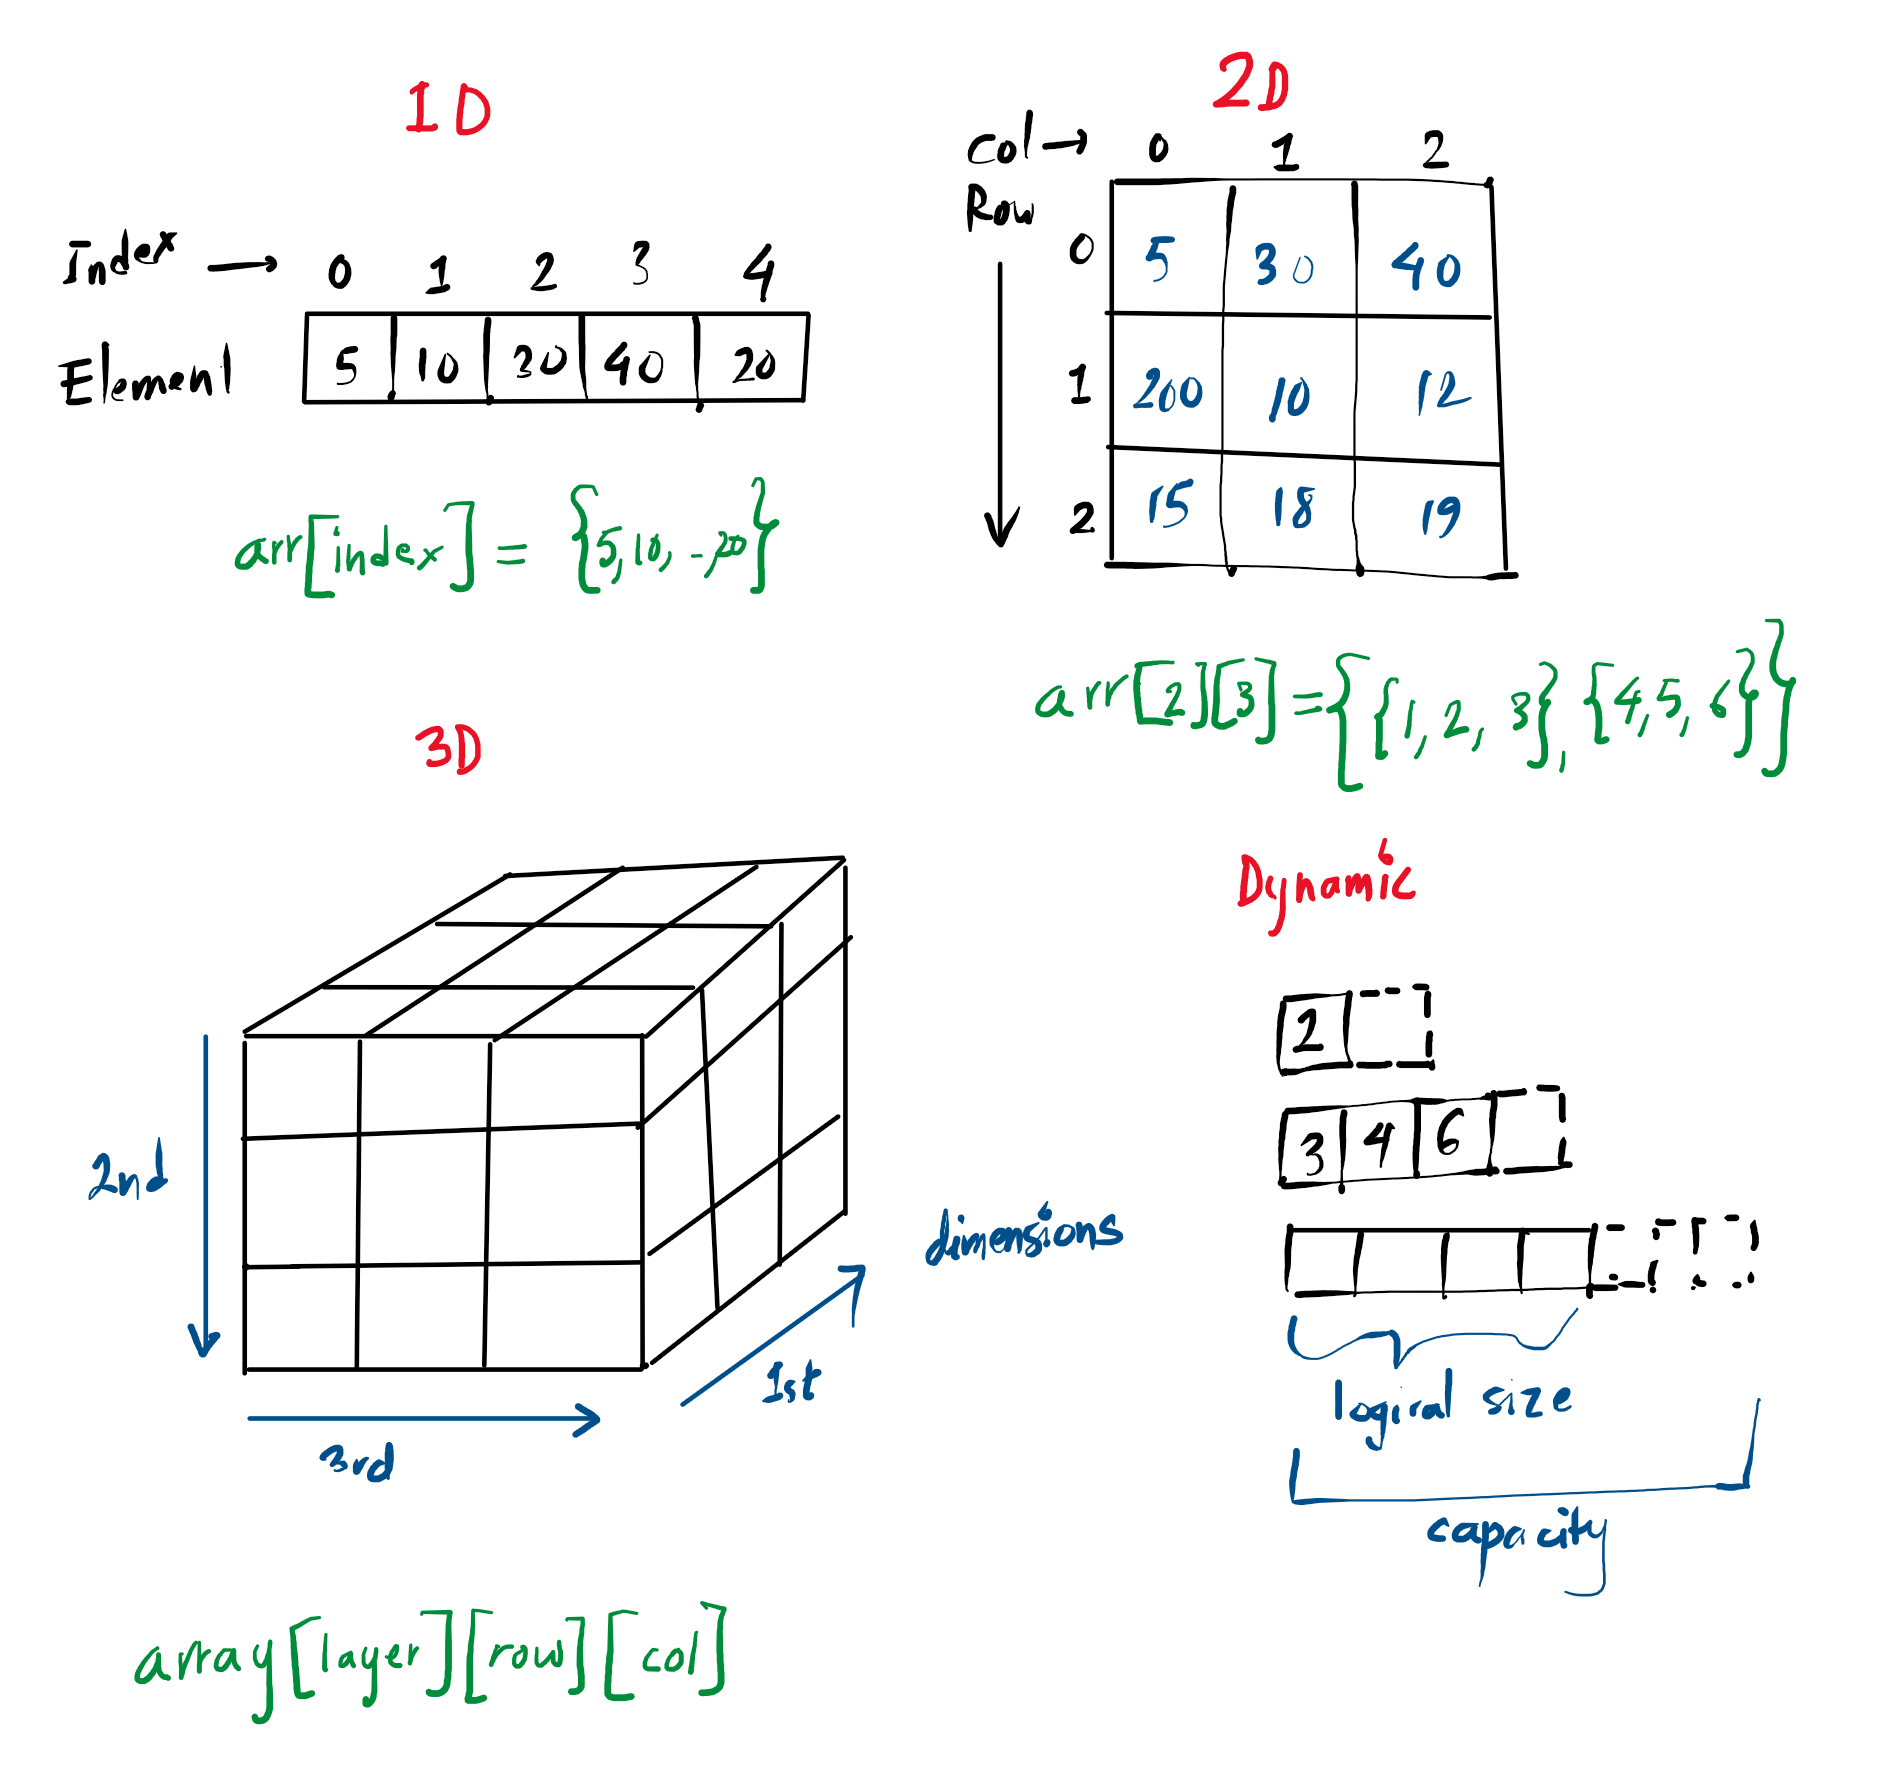 1D
Index → 0 1 2 3 4
Element 5 10 30 40 20
arr[index] = {5,10, -,20}
2D
Col → 0 1 2
Row
0 5 30 40
1 200 10 12
2 15 18 19
arr[2][3]={{1, 2, 3}, {4,5,6}}
3D
2nd
3rd
1st
dimensions
array[layer][row][col]
Dynamic
2
3 4 6
logical size
capacity